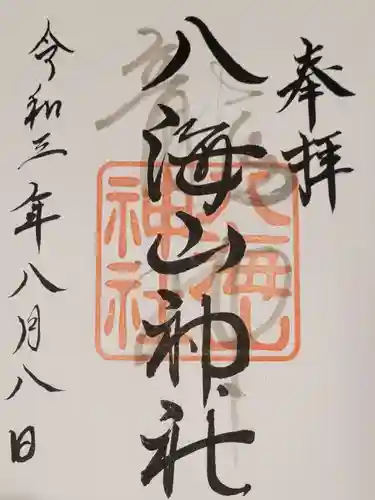 奉拝
八海山神社
八海山
神社
令和三年八月八日